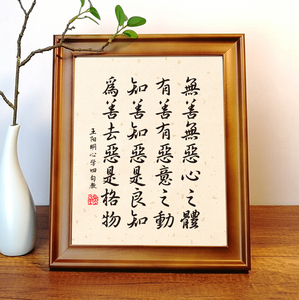 無善無惡心之體
有善有惡意之動
知善知惡是良知
為善去惡是格物
王阳明心学四句教